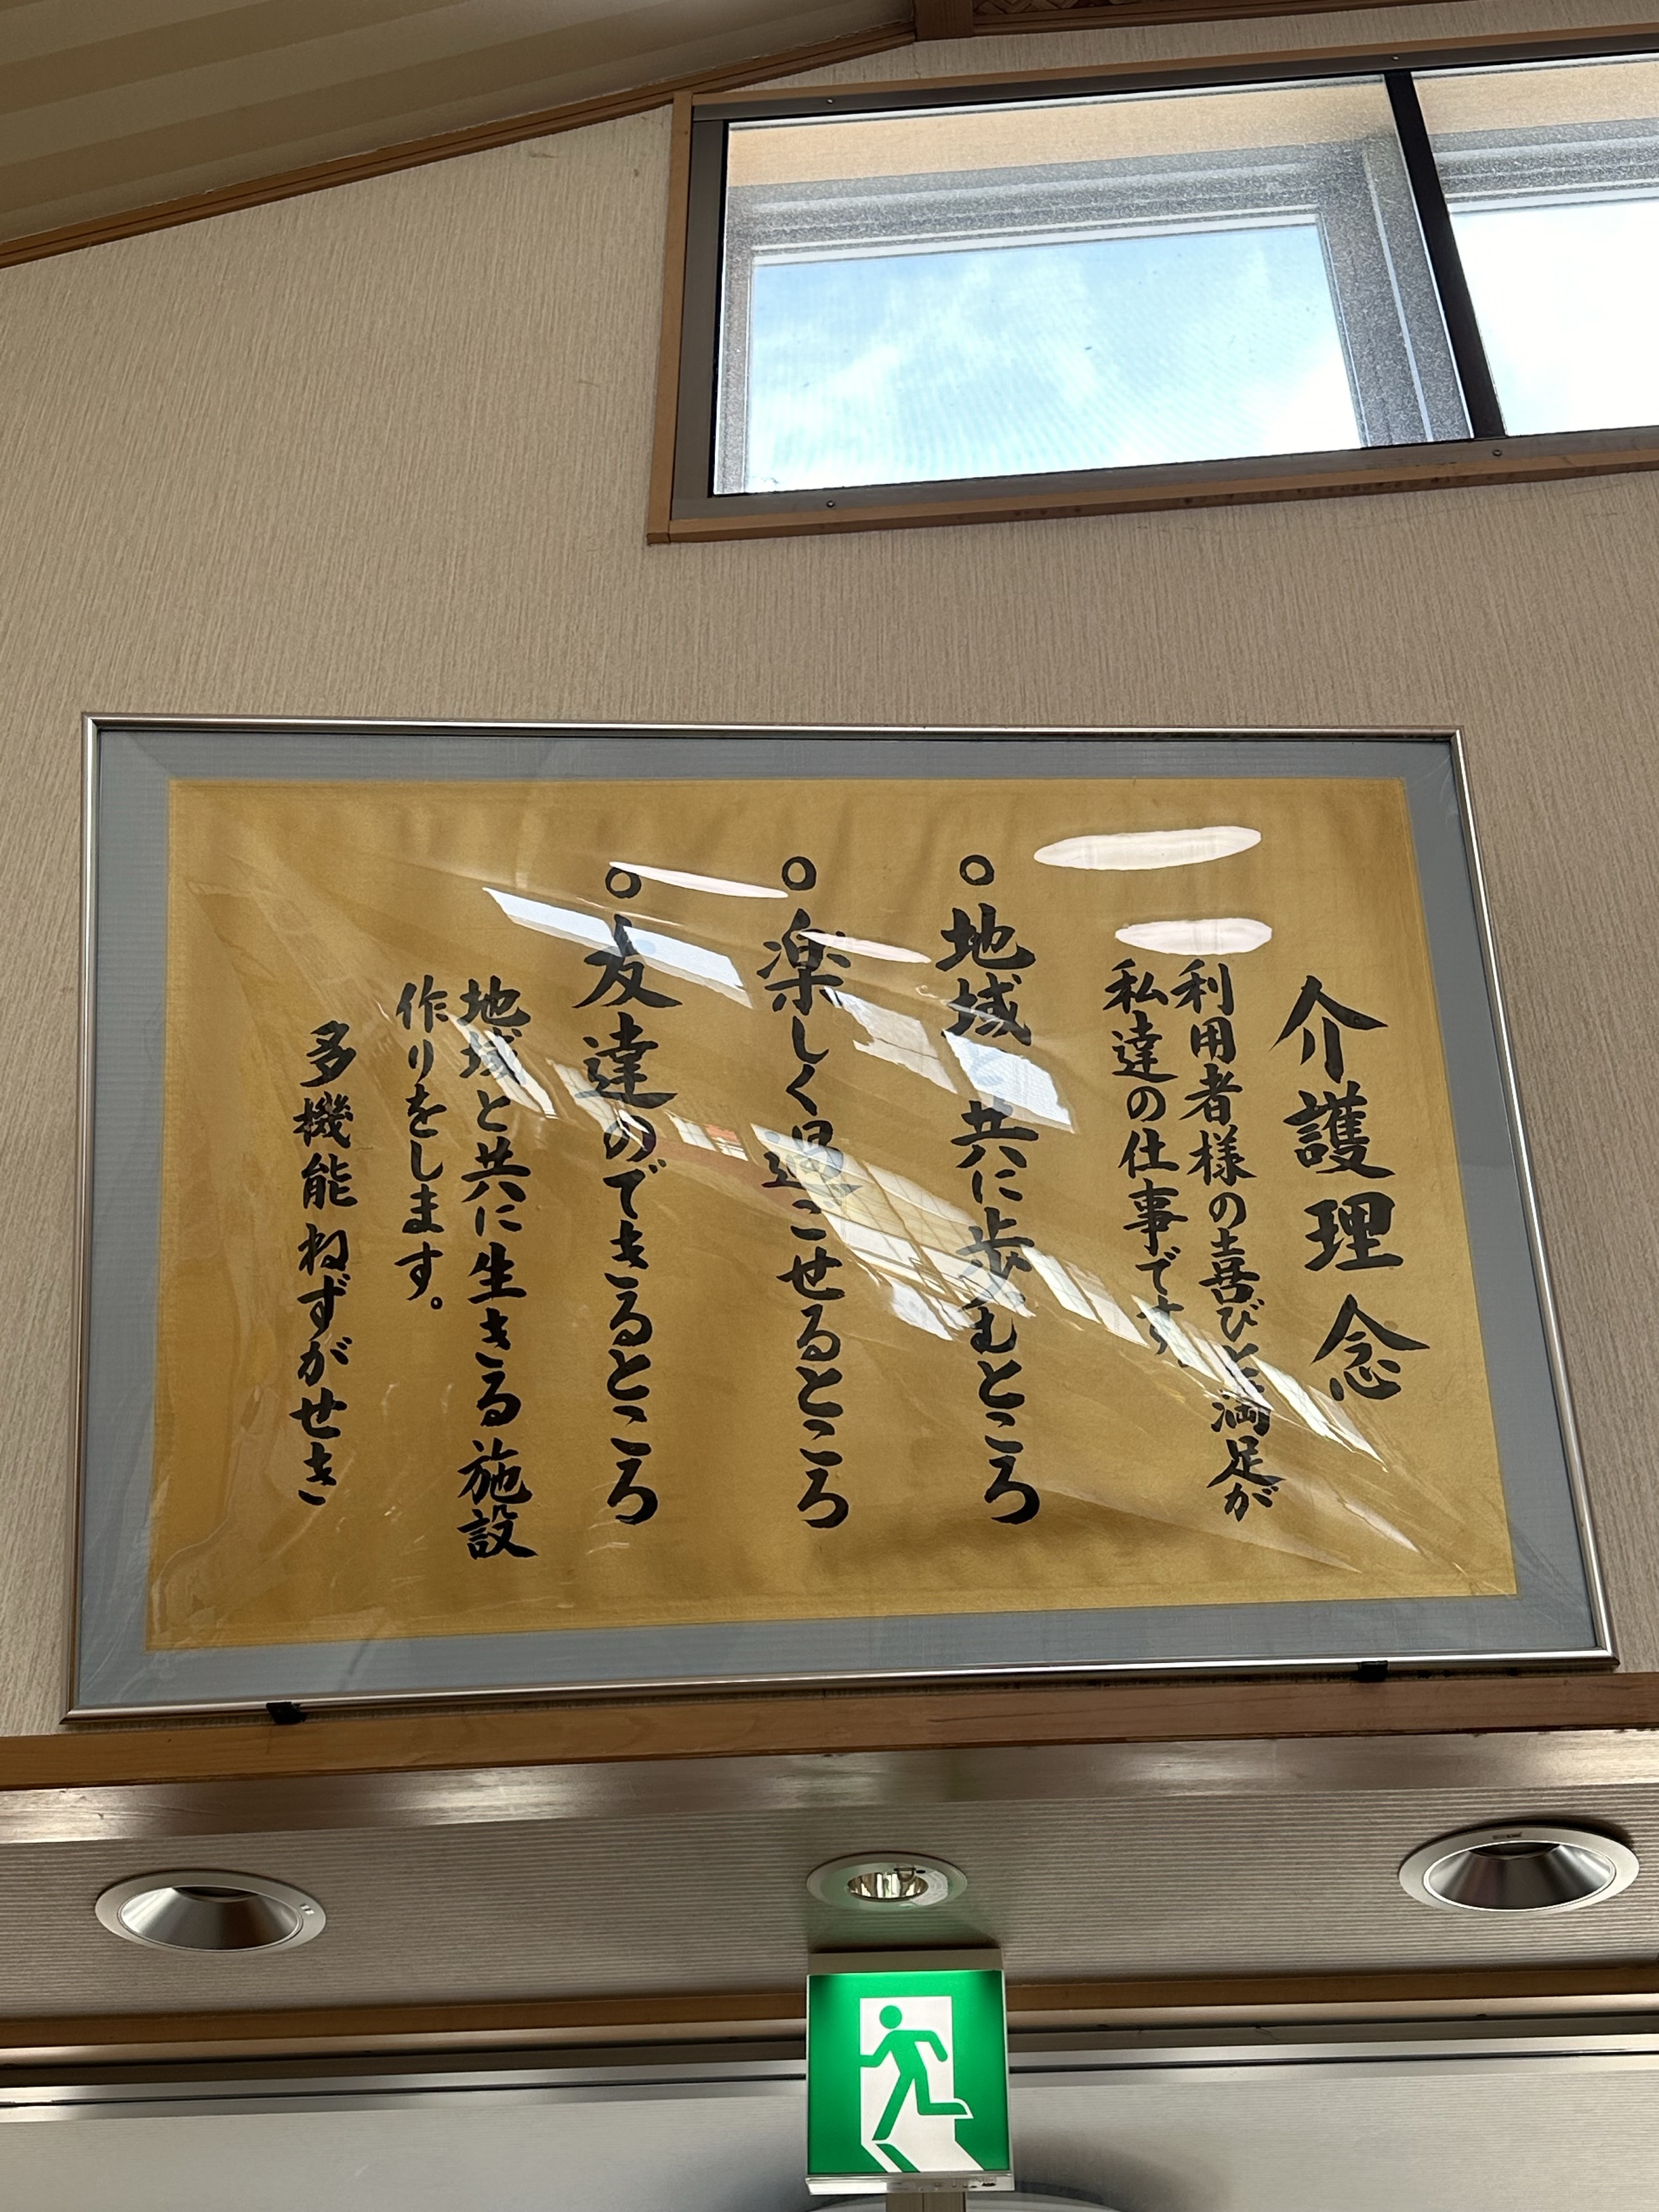 介護理念
利用者様の喜びと満足が
私達の仕事です。
○地域と共に歩むところ
○楽しく過ごせるところ
○友達のできるところ
地域と共に生きる施設
作りをします。
多機能ねずがせき